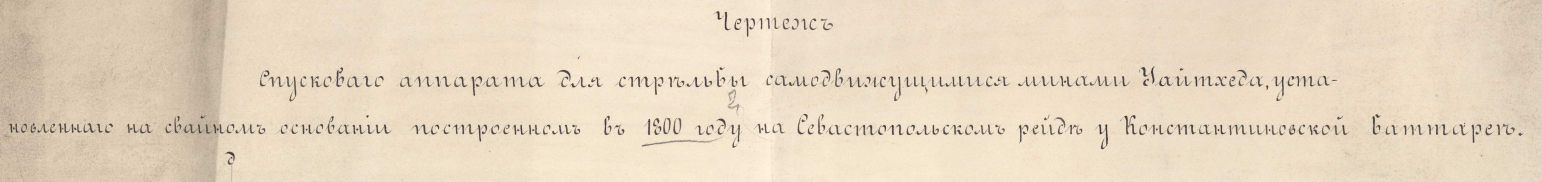 Чертежъ
Спусковаго аппарата для стрѣльбы самодвижущимися минами Уайтхеда, уста-
новленнаго на свайномъ основаніи построенномъ въ 1800 году на Севастопольскомъ рейдѣ у Константиновской баттареѣ.
д